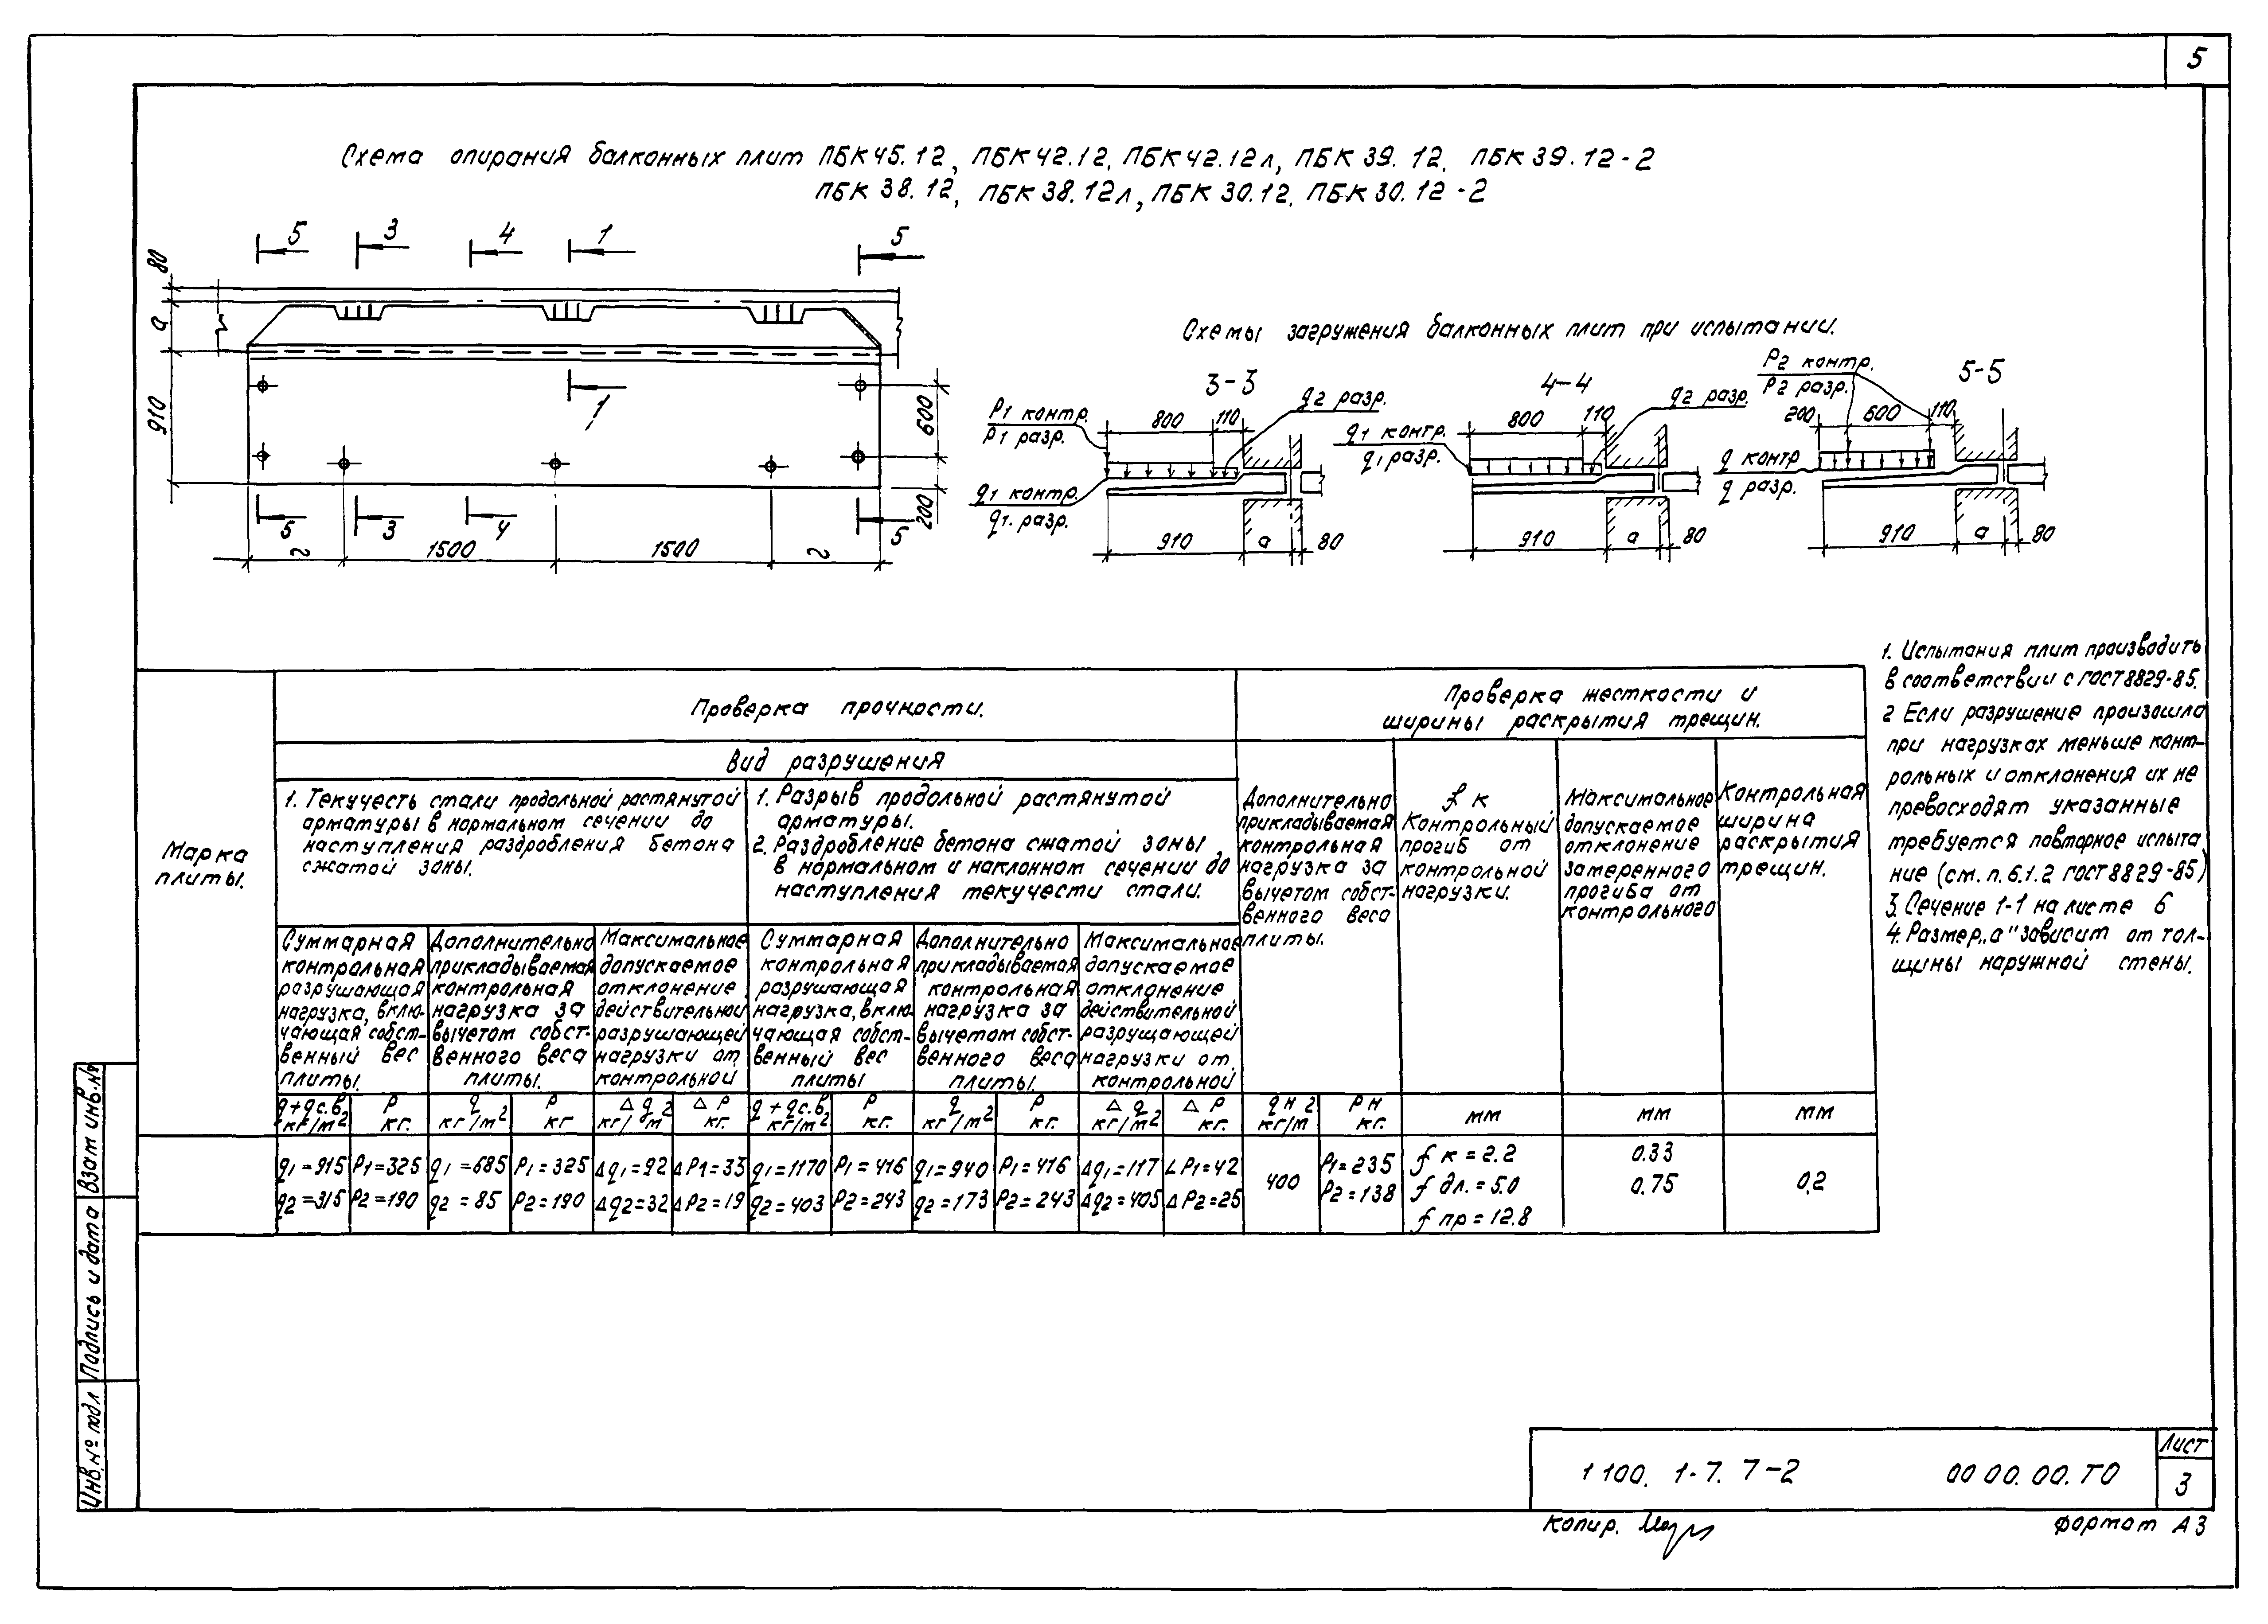 5
Схема опирания балконных плит ПБК 45.12, ПБК 42.12, ПБК 42.12л, ПБК 39.12, ПБК 39.12-2
ПБК 38.12, ПБК 38.12л, ПБК 30.12, ПБК 30.12-2
5 3 4 1 5
80
а
910
1
600
200
5 3 4 5
г 1500 1500 г
Схемы загружения балконных плит при испытании.
3-3
P1 контр.
P1 разр.
800 110
q2 разр.
q1 контр.
q1. разр.
910 а 80
4-4
q1 контр.
q1 разр.
800 110
q2 разр.
910 а 80
P2 контр.
P2 разр.
5-5
200 600 110
q контр
q разр.
910 а 80
1. Испытания плит производить
в соответствии с ГОСТ 8829-85.
2 Если разрушение произошла
при нагрузках меньше конт-
рольных и отклонения их не
превосходят указанные
требуется повторное испыта
ние (см. п. 6.1.2 ГОСТ 8829-85)
3. Сечение 1-1 на листе 6
4. Размер „а" зависит от тол-
щины наружной стены.
Марка
плиты.
Проверка прочности.
Проверка жесткости и
ширины раскрытия трещин.
Вид разрушения
1. Текучесть стали продольной растянутой
арматуры в нормальном сечении до
наступления раздробления бетона
сжатой зоны.
1. Разрыв продольной растянутой
арматуры.
2. Раздробление бетона сжатой зоны
в нормальном и наклонном сечении до
наступления текучести стали.
Дополнительно
прикладываемая
контрольная
нагрузка за
вычетом собст-
венного веса
плиты.
f к
Контрольный
прогиб от
контрольной
нагрузки.
Максимальное
допускаемое
отклонение
замеренного
прогиба от
контрольного
Контрольная
ширина
раскрытия
трещин.
Суммарная
контрольная
разрушающая
нагрузка, вклю-
чающая собст-
венный вес
плиты.
Дополнительно
прикладываемая
контрольная
нагрузка за
вычетом собст-
венного веса
плиты.
Максимальное
допускаемое
отклонение
действительной
разрушающей
нагрузки от
контрольной
Суммарная
контрольная
разрушающая
нагрузка, вклю
чающая собст-
венный вес
плиты
Дополнительно
прикладываемая
контрольная
нагрузка за
вычетом собст-
венного веса
плиты.
Максимальное
допускаемое
отклонение
действительной
разрущающей
нагрузки от
контрольной
q + qс.в. кг/м2
P кг.
q кг/м2
P кг
Δ q кг/м2
Δ P кг.
q + qс.в. кг/м2
P кг.
q кг/м2
P кг.
Δ q кг/м2
Δ P кг.
q н кг/м2
P н кг.
мм
мм
мм
q1=915 P1=325 q1=685 P1=325 Δq1=92 ΔP1=33 q1=1170 P1=416 q1=940 P1=416 Δq1=117 ΔP1=42
q2=315 P2=190 q2=85 P2=190 Δq2=32 ΔP2=19 q2=403 P2=243 q2=173 P2=243 Δq2=405 ΔP2=25
400
P1=235
P2=138
f к = 2.2
f дл. = 5.0
f пр = 12.8
0.33
0.75
0,2
Взам инв.№
Подпись и дата
Инв.№ подл
1 100. 1-7. 7-2
00 00. 00. ТО
Лист
3
Копир.
Формат А3